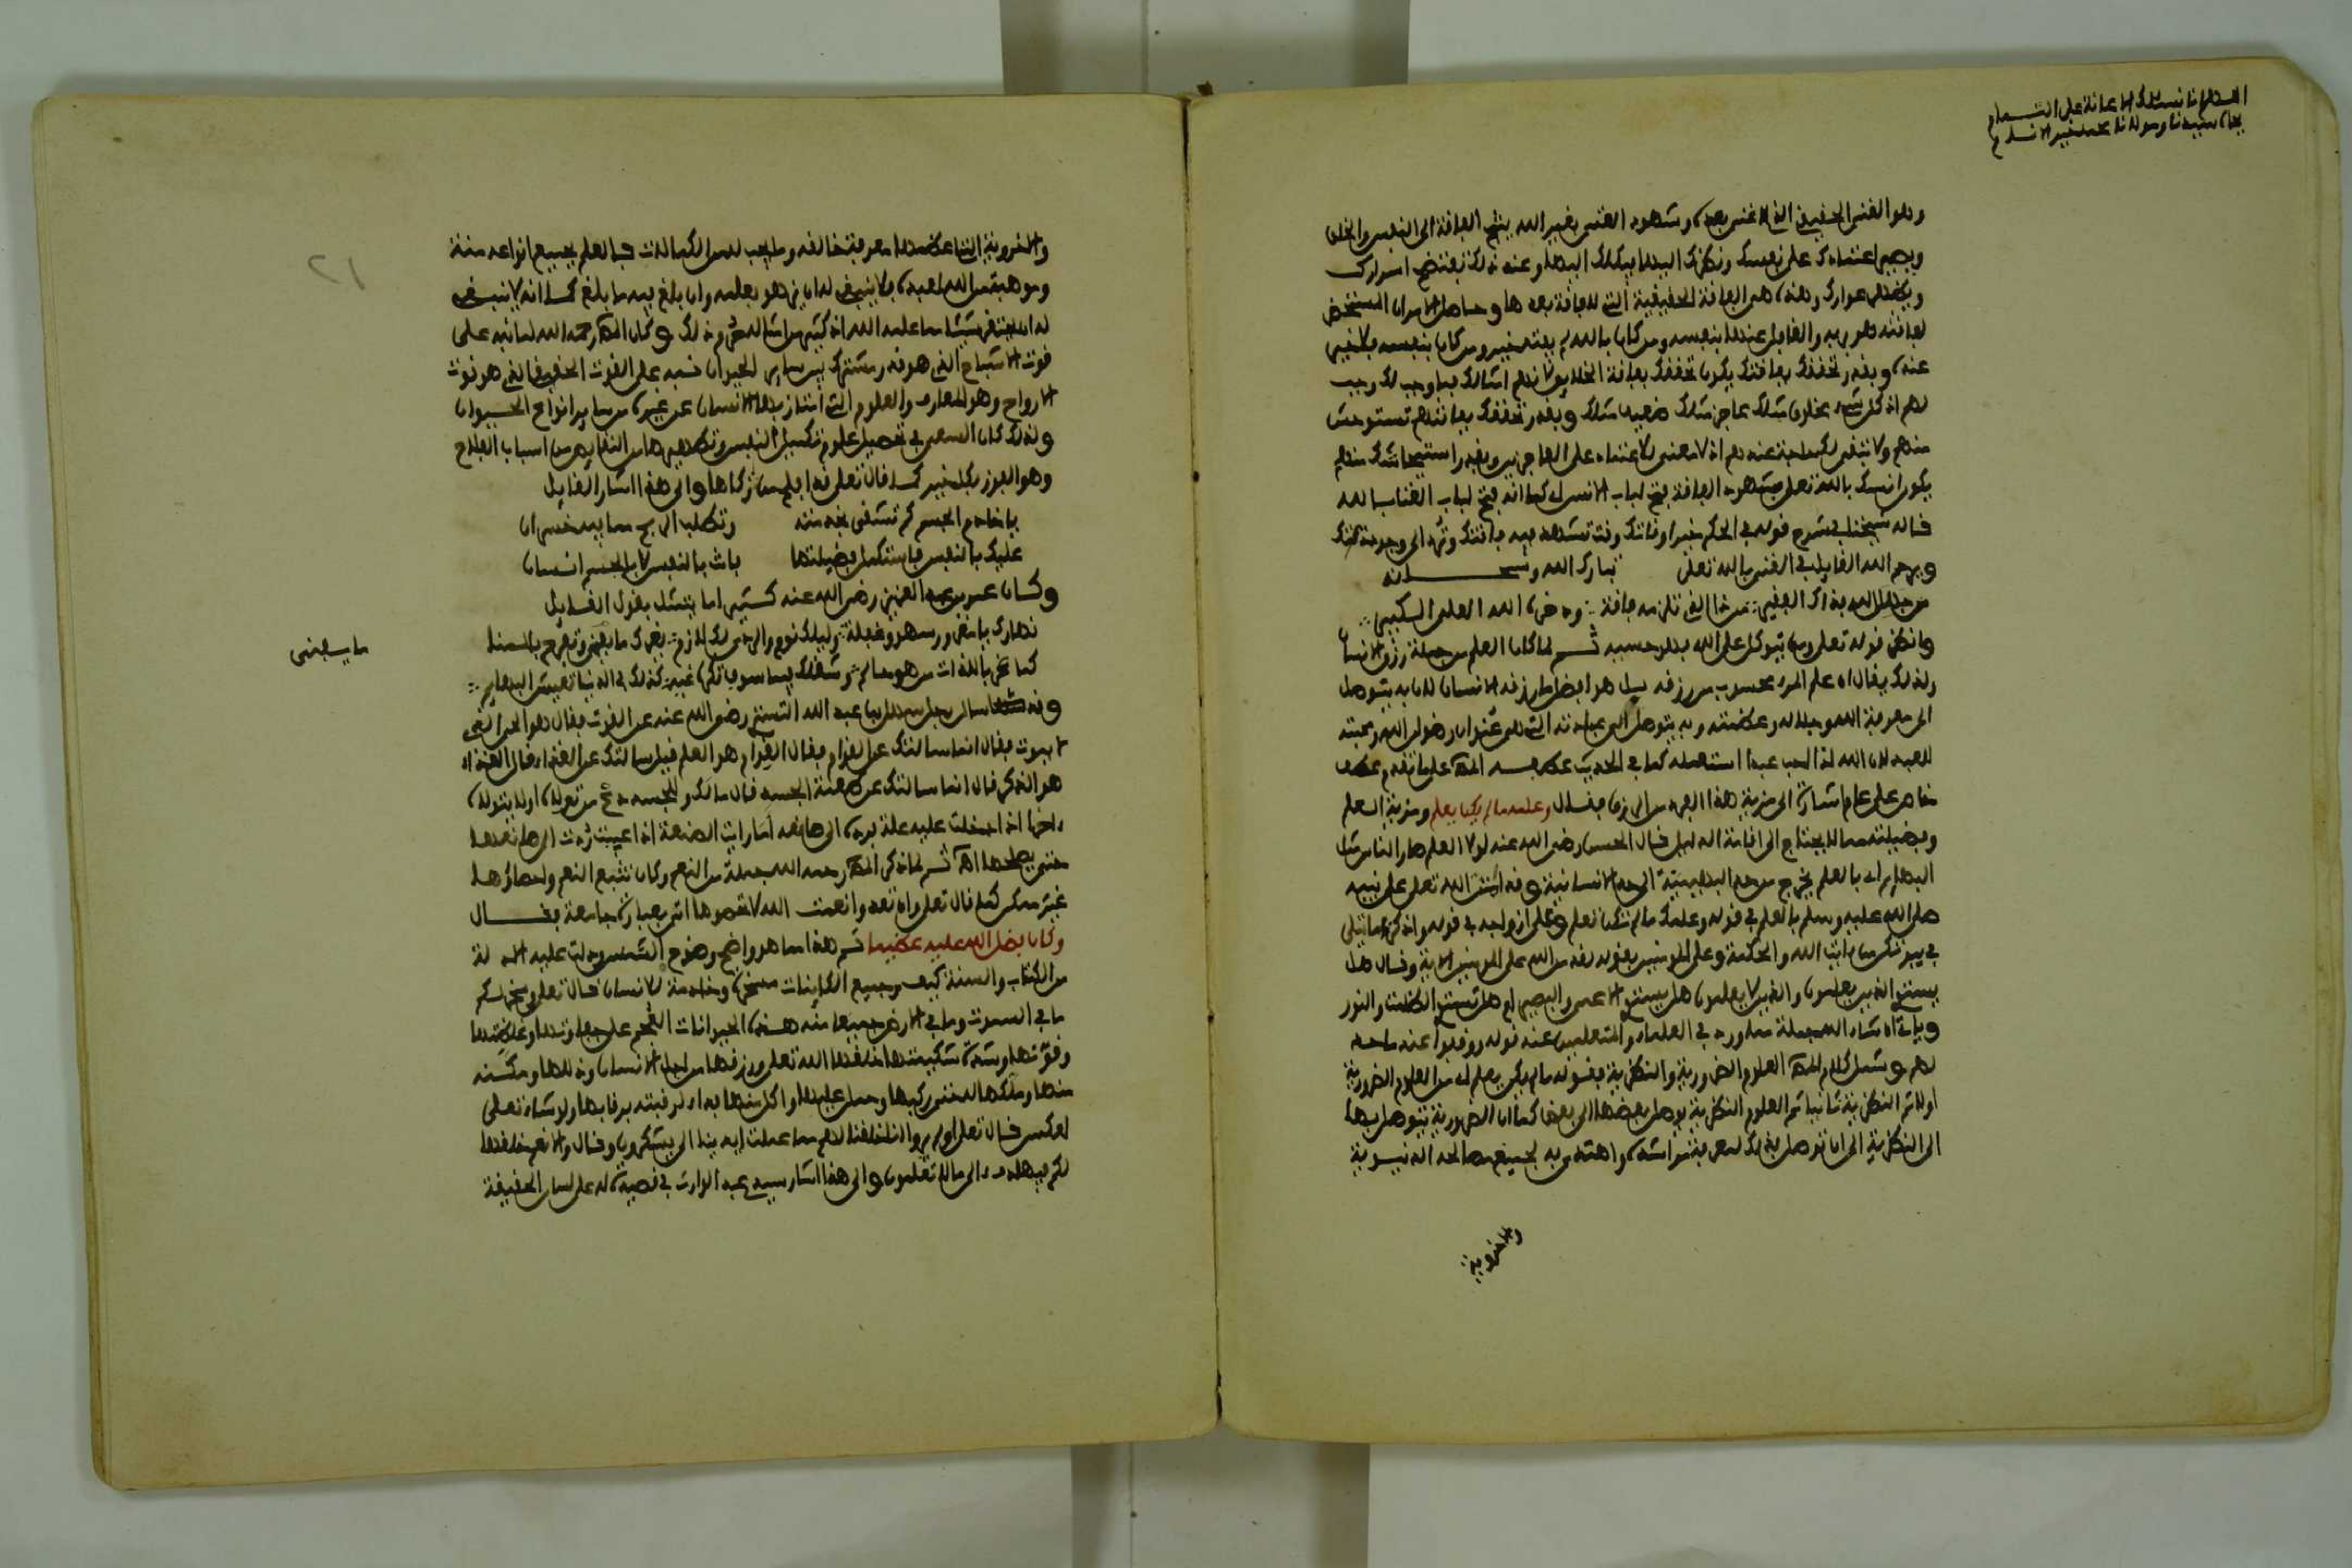 اللهم انا نسئلك الاعانة على التمام
بجاه سيدنا ومولانا محمد خير الانام
وهو الغنى الحقيقي الذي لا غنى بعده وشهود الغنى بغير الله ينتج الفاقة الى النفس والخلق
ويصير اعتمادك على نفسك ونظرك اليها يكلك اليها وعند ذلك يفتضح اسرارك
ويظهر عوارك وهذه هي الفاقة الحقيقية التي لا فاقة بعدها وحاصل الامر ان المستحضر
لفاقته هو بربه والغافل عنها بنفسه ومن كان بالله لم يفته خير ومن كان بنفسه فلا خير
عنده وبقدر تحققك بفاقتك يكون تحققك بفاقة الخلايق لانهم امثالك فما وجب لك وجب
لهم اذ كل شيء مخلوق مثلك عاجز مثلك ضعيف مثلك وبقدر تحققك بفاقتهم تستوحش
منهم ولا تبقى لك حاجة عندهم اذ لا معنى للاعتماد على العاجزين وبقدر استيحاشك منهم
يكون انسك بالله تعلى فشهود الفاقة يفتح لباب الانس كما انه يفتح لباب الغنا بالله
قاله شيخنا في شرح قوله في الحكم خير اوقاتك وقت تشهد فيه فاقتك وترد الى وجود ذلتك
ويرحم الله القايل في الغنى بالله تعلى تبارك الله وسبحانه
من جهل الله فذاك الفقير من ذا الذي تلزمه فاقة وذخره الله العلي الكبير
وانظر قوله تعلى ومن يتوكل على الله فهو حسبه ثم لما كان العلم من جملة رزق الانسان
ولذلك يقال ان علم المرء محسوب من رزقه بل هو افضل ما رزقه الانسان لان به يتوصل
الى معرفة الله وجلاله وعظمته وبه يتوصل الى عبادته التي هي عنوان رضوان الله ومحبته
للعبد لان الله اذا احب عبدا استعمله كما في الحديث عطفه المص على ما تقدم عطف
خاص على عام اشارة الى مزية هذا الفرد من الرزق فقال وعلمه ما لم يكن يعلم ومزية العلم
وفضيلته مما لا يحتاج الى اقامة الدليل قال الحسن رضي الله عنه لولا العلم صار الناس مثل
البهايم اي بالعلم يخرج من حد البهيمية الى حد الانسانية وقد امتن الله تعلى على نبيه
صلى الله عليه وسلم بالعلم في قوله وعلمك ما لم تكن تعلم وعلى ازواجه في قوله واذكرن ما يتلى
في بيوتكن من ءايت الله والحكمة وعلى المومنين بقوله لقد من الله على المومنين الاية وقال هل
يستوي الذين يعلمون والذين لا يعلمون هل يستوي الاعمى والبصير ام هل تستوي الظلمت والنور
وياتي ان شاء الله جملة مما ورد في العلماء والمتعلمين عند قوله ووفدوا عند ما حد
لهم وشمل كلام المص العلوم الضرورية والنظرية فقوله ما لم يكن يعلم اي من العلوم الضرورية
اولا ثم النظرية ثانيا ثم العلوم النظرية يوصل بعضها الى بعض كما ان الضرورية يتوصل بها
الى النظرية الى ان توصل بذلك لمعرفة من انشأه واهتدى به لجميع مصالحه الدنيوية
والاخروية
والاخروية التي اعظمها معرفة خالقه وما يجب له من الكمالات فالعلم بجميع انواعه منة
وموهبة من الله لعبده فلا ينبغي له ان يزهو بعلمه وان بلغ فيه ما بلغ كما انه لا ينبغي
له ان يحتقر شيئا مما علمه الله اذ كثير من امثاله حرم ذلك وكان المص رحمه الله لما نبه على
قوت الاشباح الذي هو قدر مشترك بين ساير الحيوان نبه على القوت الحقيقي الذي هو قوت
الارواح وهو المعارف والعلوم التي امتاز بها الانسان عن غيره من ساير انواع الحيوان
ولذلك كان السعي في تحصيل علوم تكميل النفس وتطهيرها من النقايص من اسباب الفلاح
وهو الفوز بكل خير كما قال تعلى قد افلح من زكاها والى هذا اشار القايل
يا خادم الجسم كم تشقى بخدمته وتطلب الربح مما فيه خسران
عليك بالنفس فاستكمل فضيلتها فانت بالنفس لا بالجسم انسان
وكان عمر بن عبد العزيز رضي الله عنه كثيرا ما يتمثل بقول القايل
نهارك يا مغرور سهو وغفلة وليلك نوم والردى لك لازم يغرك ما يفنى وتفرح بالمنا
كما غر باللذات من هو حالم وشغلك فيما سوف تكره غبه كذلك في الدنيا تعيش البهايم
ما يفنى
وقد سال رجل سهل بن عبد الله التستري رضي الله عنه عن القوت فقال هو الحي الذي
لا يموت فقال انما سالتك عن القوام فقال القوام هو العلم فقيل سالتك عن الغذاء قال الغذاء
هو الذكر قال انما سالتك عن طعمة الجسد قال ما لك وللجسد دع من تولاه اولا يتولاه
ءاخرا اذا دخلت عليه علة رده الى صانعه اما رايت الصنعة اذا عيبت ردت الى صانعها
حتى يصلحها اه ثم لما ذكر المص رحمه الله جملة من النعم وكان تتبع النعم واحصاؤها
غير ممكن كما قال تعلى وان تعدوا نعمت الله لا تحصوها اتى بعبارة جامعة فقال
وكان فضل الله عليه عظيما ثم هذا مما هو واضح وضوح الشمس ودلت عليه الادلة
من الكتاب والسنة كيف وجميع الكاينات مسخرة وخادمة للانسان قال تعلى وسخر لكم
ما في السموت وما في الارض جميعا منه هذه الحيوانات العجم على جفاوتها وغلظتها
وقوتها وشدة شكيمتها خلقها الله تعلى ورزقها من اجل الانسان وذللها ومكنه
منها وملكها له حتى ركبها وحمل عليها واكل منها فداء لرقبته برقابها ولو شاء تعلى
لعكس قال تعلى اولم يروا انا خلقنا لهم مما عملت ايدينا الى يشكرون وقال والانعم خلقها
لكم فيها دفء الى ما لا تعلمون والى هذا اشار سيدي عبد الوارث في قصيدة له على لسان الحقيقة